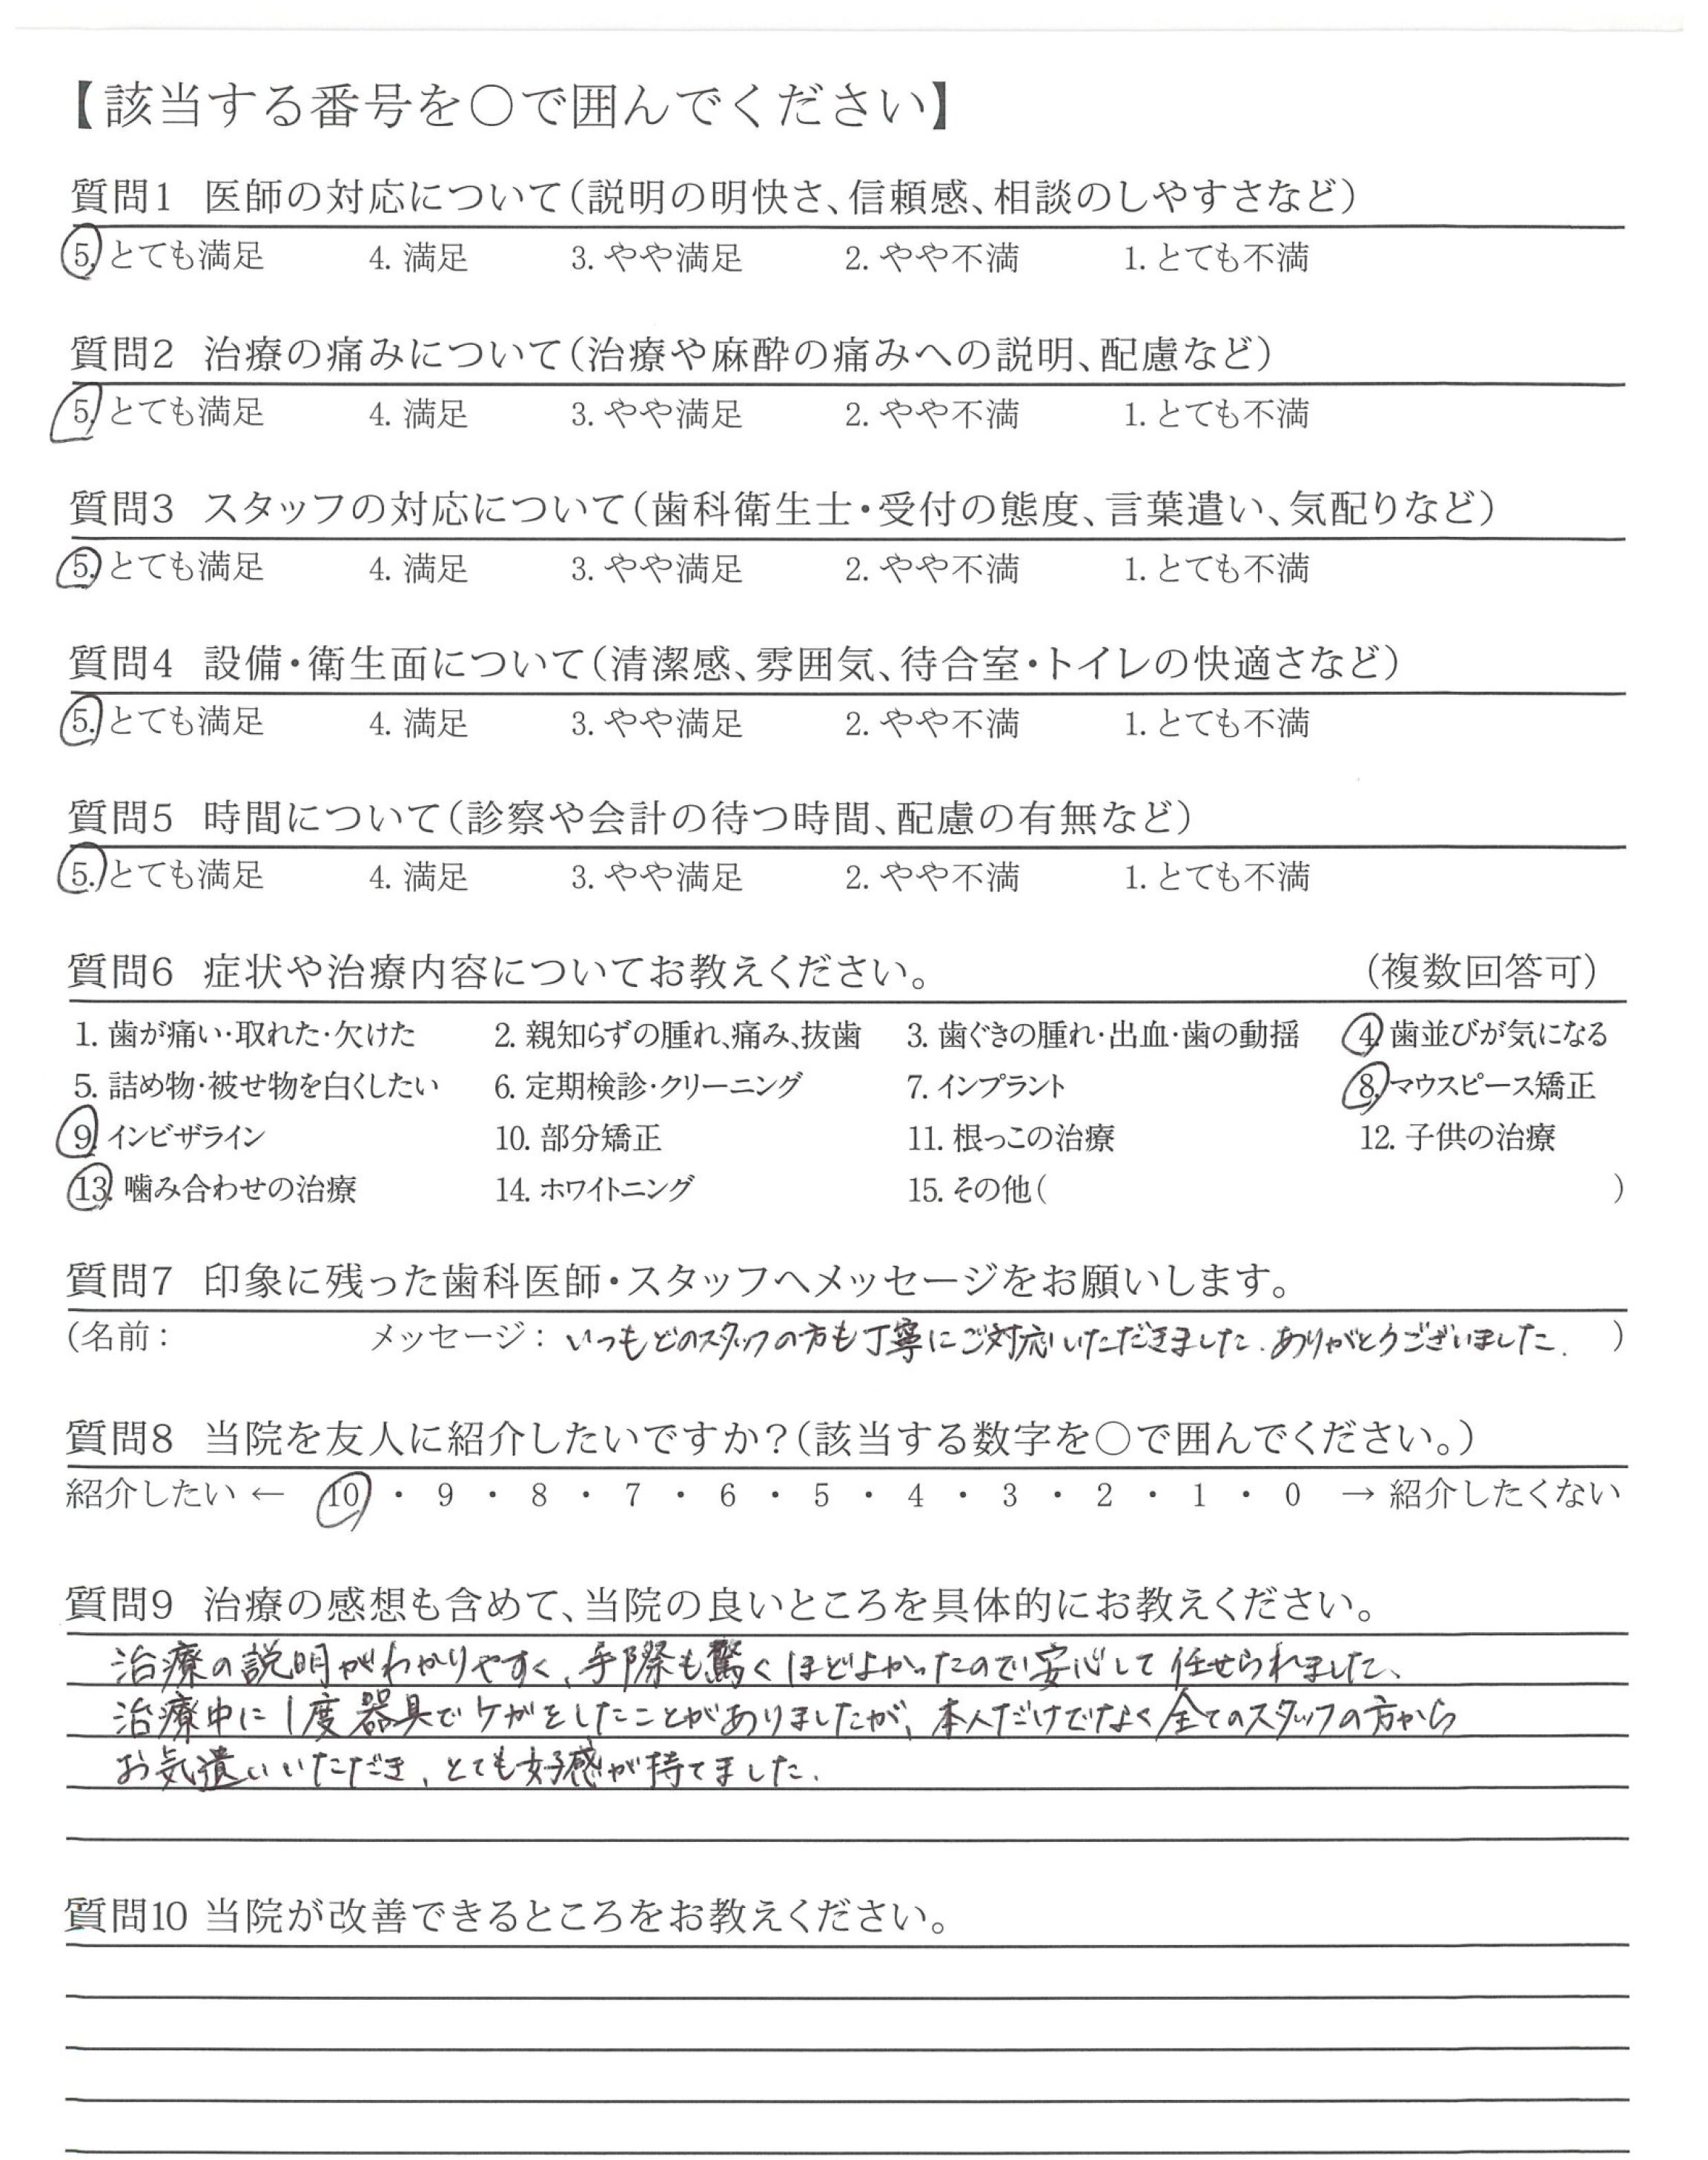 【該当する番号を○で囲んでください】
質問1 医師の対応について(説明の明快さ、信頼感、相談のしやすさなど)
5. とても満足 4. 満足 3. やや満足 2. やや不満 1. とても不満
質問2 治療の痛みについて(治療や麻酔の痛みへの説明、配慮など)
5. とても満足 4. 満足 3. やや満足 2. やや不満 1. とても不満
質問3 スタッフの対応について(歯科衛生士・受付の態度、言葉遣い、気配りなど)
5. とても満足 4. 満足 3. やや満足 2. やや不満 1. とても不満
質問4 設備・衛生面について(清潔感、雰囲気、待合室・トイレの快適さなど)
5. とても満足 4. 満足 3. やや満足 2. やや不満 1. とても不満
質問5 時間について(診察や会計の待つ時間、配慮の有無など)
5. とても満足 4. 満足 3. やや満足 2. やや不満 1. とても不満
質問6 症状や治療内容についてお教えください。 (複数回答可)
1. 歯が痛い・取れた・欠けた 2. 親知らずの腫れ、痛み、抜歯 3. 歯ぐきの腫れ・出血・歯の動揺 4. 歯並びが気になる
5. 詰め物・被せ物を白くしたい 6. 定期検診・クリーニング 7. インプラント 8. マウスピース矯正
9. インビザライン 10. 部分矯正 11. 根っこの治療 12. 子供の治療
13. 噛み合わせの治療 14. ホワイトニング 15. その他( )
質問7 印象に残った歯科医師・スタッフへメッセージをお願いします。
(名前: メッセージ: いつもどのスタッフの方も丁寧にご対応いただきました。ありがとうございました。 )
質問8 当院を友人に紹介したいですか?(該当する数字を○で囲んでください。)
紹介したい ← 10 ・ 9 ・ 8 ・ 7 ・ 6 ・ 5 ・ 4 ・ 3 ・ 2 ・ 1 ・ 0 → 紹介したくない
質問9 治療の感想も含めて、当院の良いところを具体的にお教えください。
治療の説明がわかりやすく、手際も驚くほどよかったので安心して任せられました、
治療中に1度器具でケガをしたことがありましたが、本人だけでなく全てのスタッフの方から
お気遣いいただき、とても好感が持てました。
質問10 当院が改善できるところをお教えください。